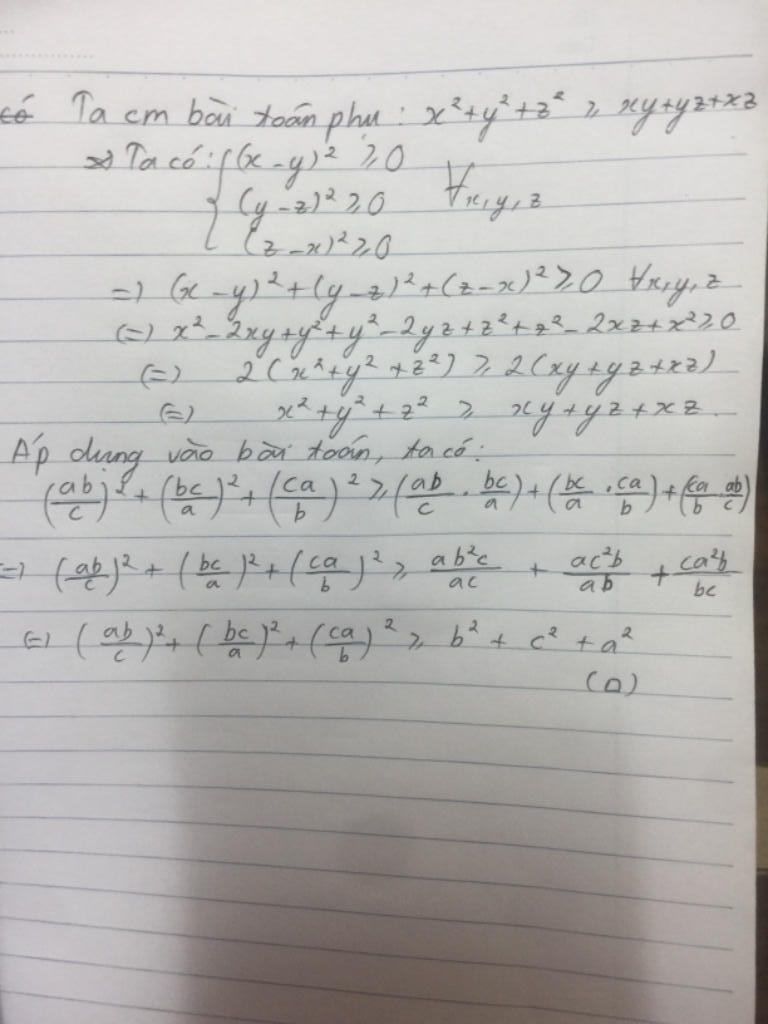 có Ta cm bài toán phụ: x² + y² + z² ≥ xy + yz + xz
=> Ta có: { (x - y)² ≥ 0
(y - z)² ≥ 0 ∀x, y, z
(z - x)² ≥ 0
=) (x - y)² + (y - z)² + (z - x)² ≥ 0 ∀x, y, z
(=) x² - 2xy + y² + y² - 2yz + z² + z² - 2xz + x² ≥ 0
(=) 2(x² + y² + z²) ≥ 2(xy + yz + xz)
(=) x² + y² + z² ≥ xy + yz + xz.
Áp dụng vào bài toán, ta có:
(ab/c)² + (bc/a)² + (ca/b)² ≥ (ab/c . bc/a) + (bc/a . ca/b) + (ca/b . ab/c)
=) (ab/c)² + (bc/a)² + (ca/b)² ≥ ab²c/ac + ac²b/ab + ca²b/bc
(=) (ab/c)² + (bc/a)² + (ca/b)² ≥ b² + c² + a²
(□)